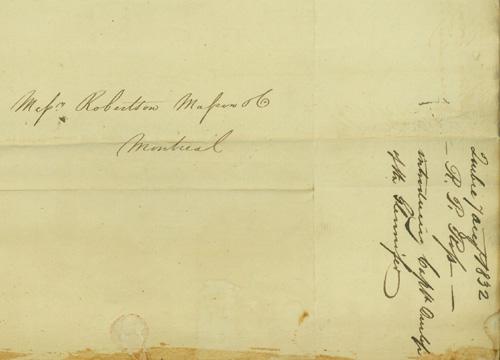 Messrs Robertson Masson & Co
Montreal
Quebec 7 augt 1832
R. P. Ross
introducing Captn
of the Jennifer